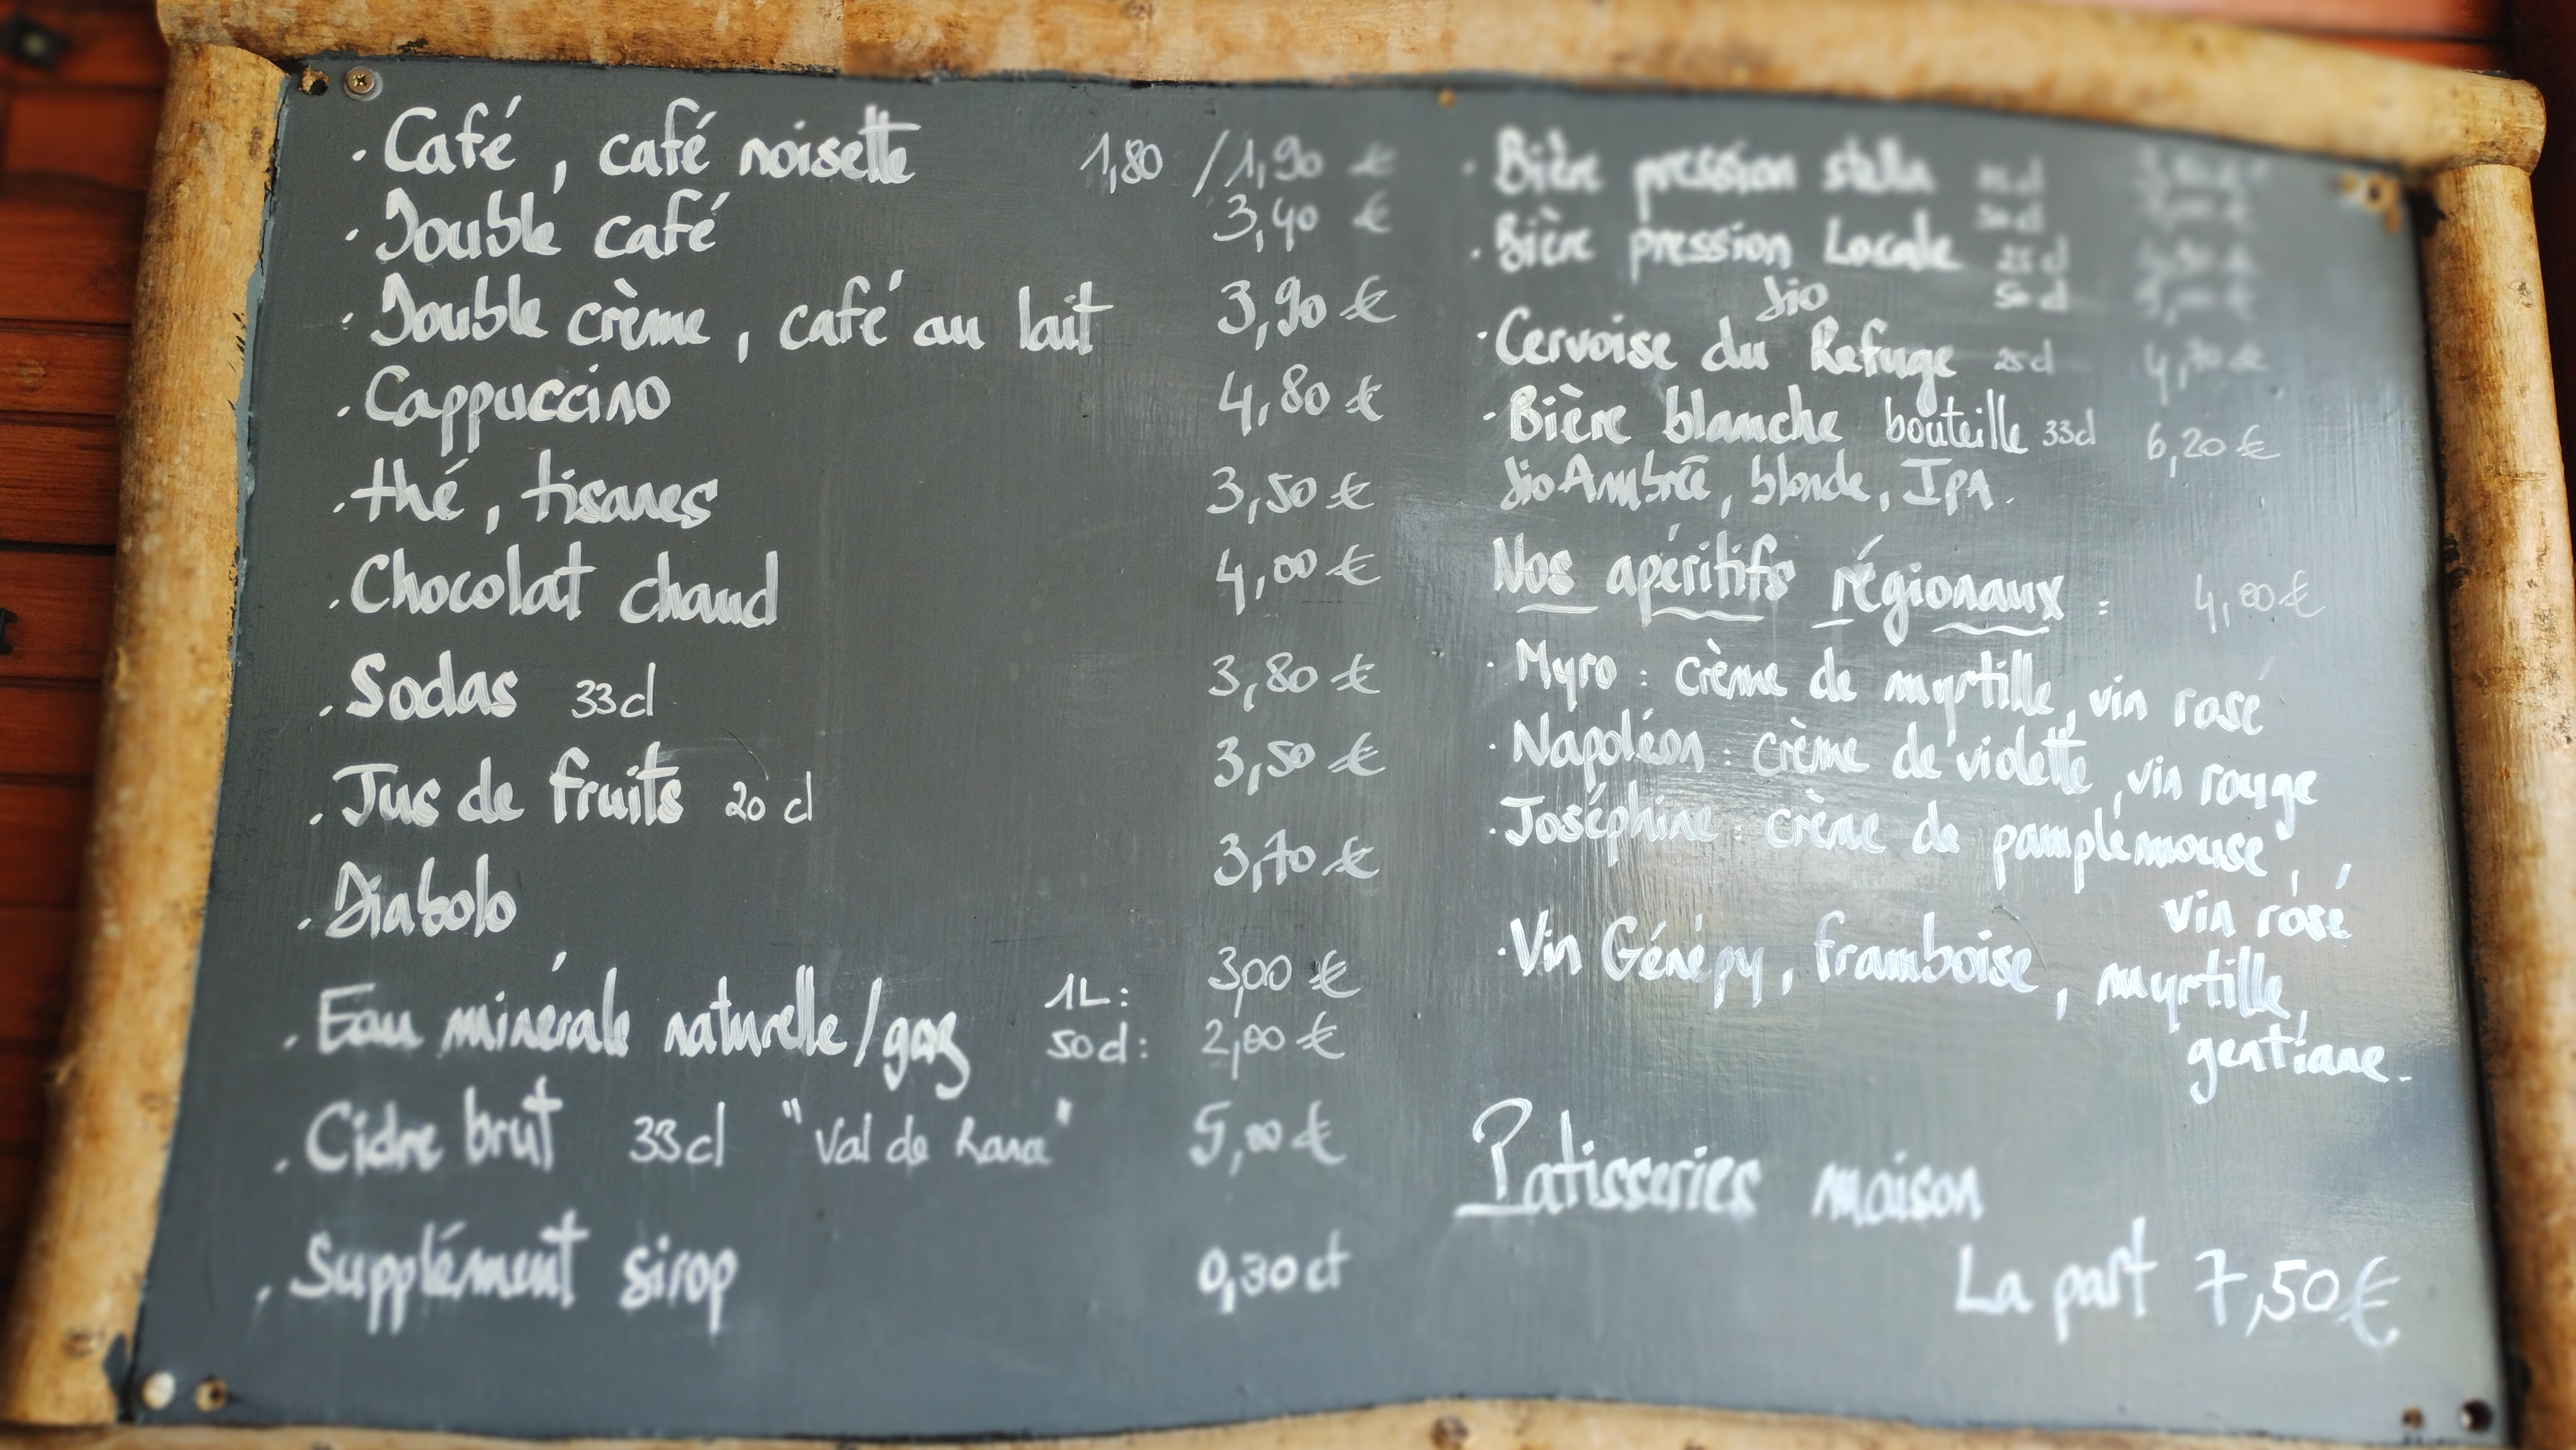 . Café, café noisette 1,80 / 1,90 €
. Double café 3,40 €
. Double crème, café au lait 3,90 €
. Cappuccino 4,80 €
. thé, tisanes 3,50 €
. Chocolat chaud 4,00 €
. Sodas 33cl 3,80 €
. Jus de fruits 20 cl 3,50 €
. Diabolo 3,70 €
. Eau minérale naturelle/gaz 1L: 3,00 €
50cl: 2,00 €
. Cidre brut 33cl "Val de Rance" 5,00 €
. Supplément sirop 0,30 ct
. Bière pression stella
50cl
. Bière pression Locale 25cl
bio 50cl
. Cervoise du Refuge 25cl 4,70 €
. Bière blanche bouteille 33cl 6,20 €
bio Ambrée, blonde, IPA.
Nos apéritifs régionaux : 4,00 €
. Myro : crème de myrtille, vin rosé
. Napoléon : crème de violette, vin rouge
. Joséphine : crème de pamplemousse,
vin rosé
. Vin Génépy, framboise, myrtille,
gentiane.
Patisseries maison
La part 7,50 €